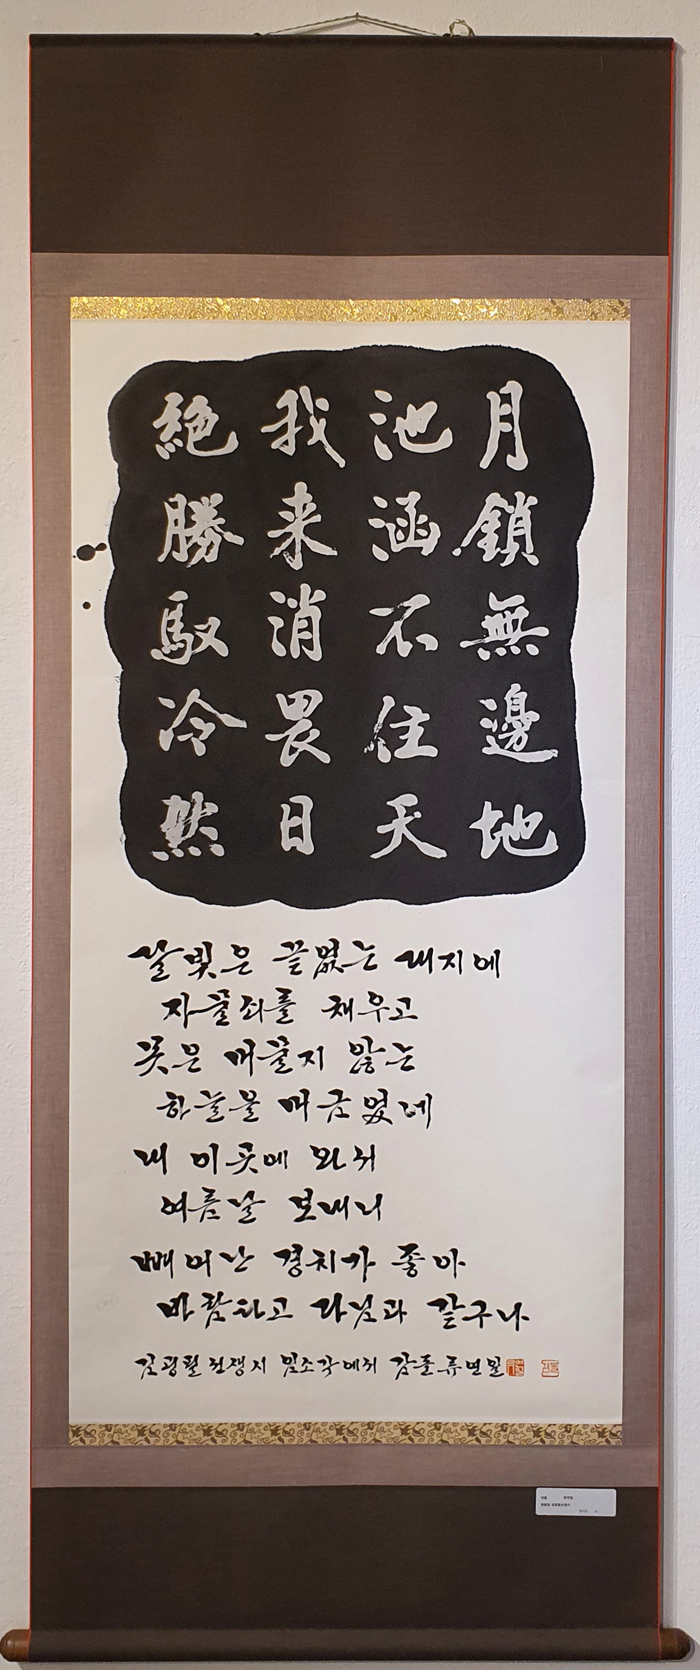 月鎖無邊地
池涵不住天
我来消畏日
絶勝馭冷然
달빛은 끝없는 대지에
자물쇠를 채우고
못은 머물지 않는
하늘을 머금었네
내 이곳에 와서
여름날 보내니
빼어난 경치가 좋아
바람타고 다님과 같구나